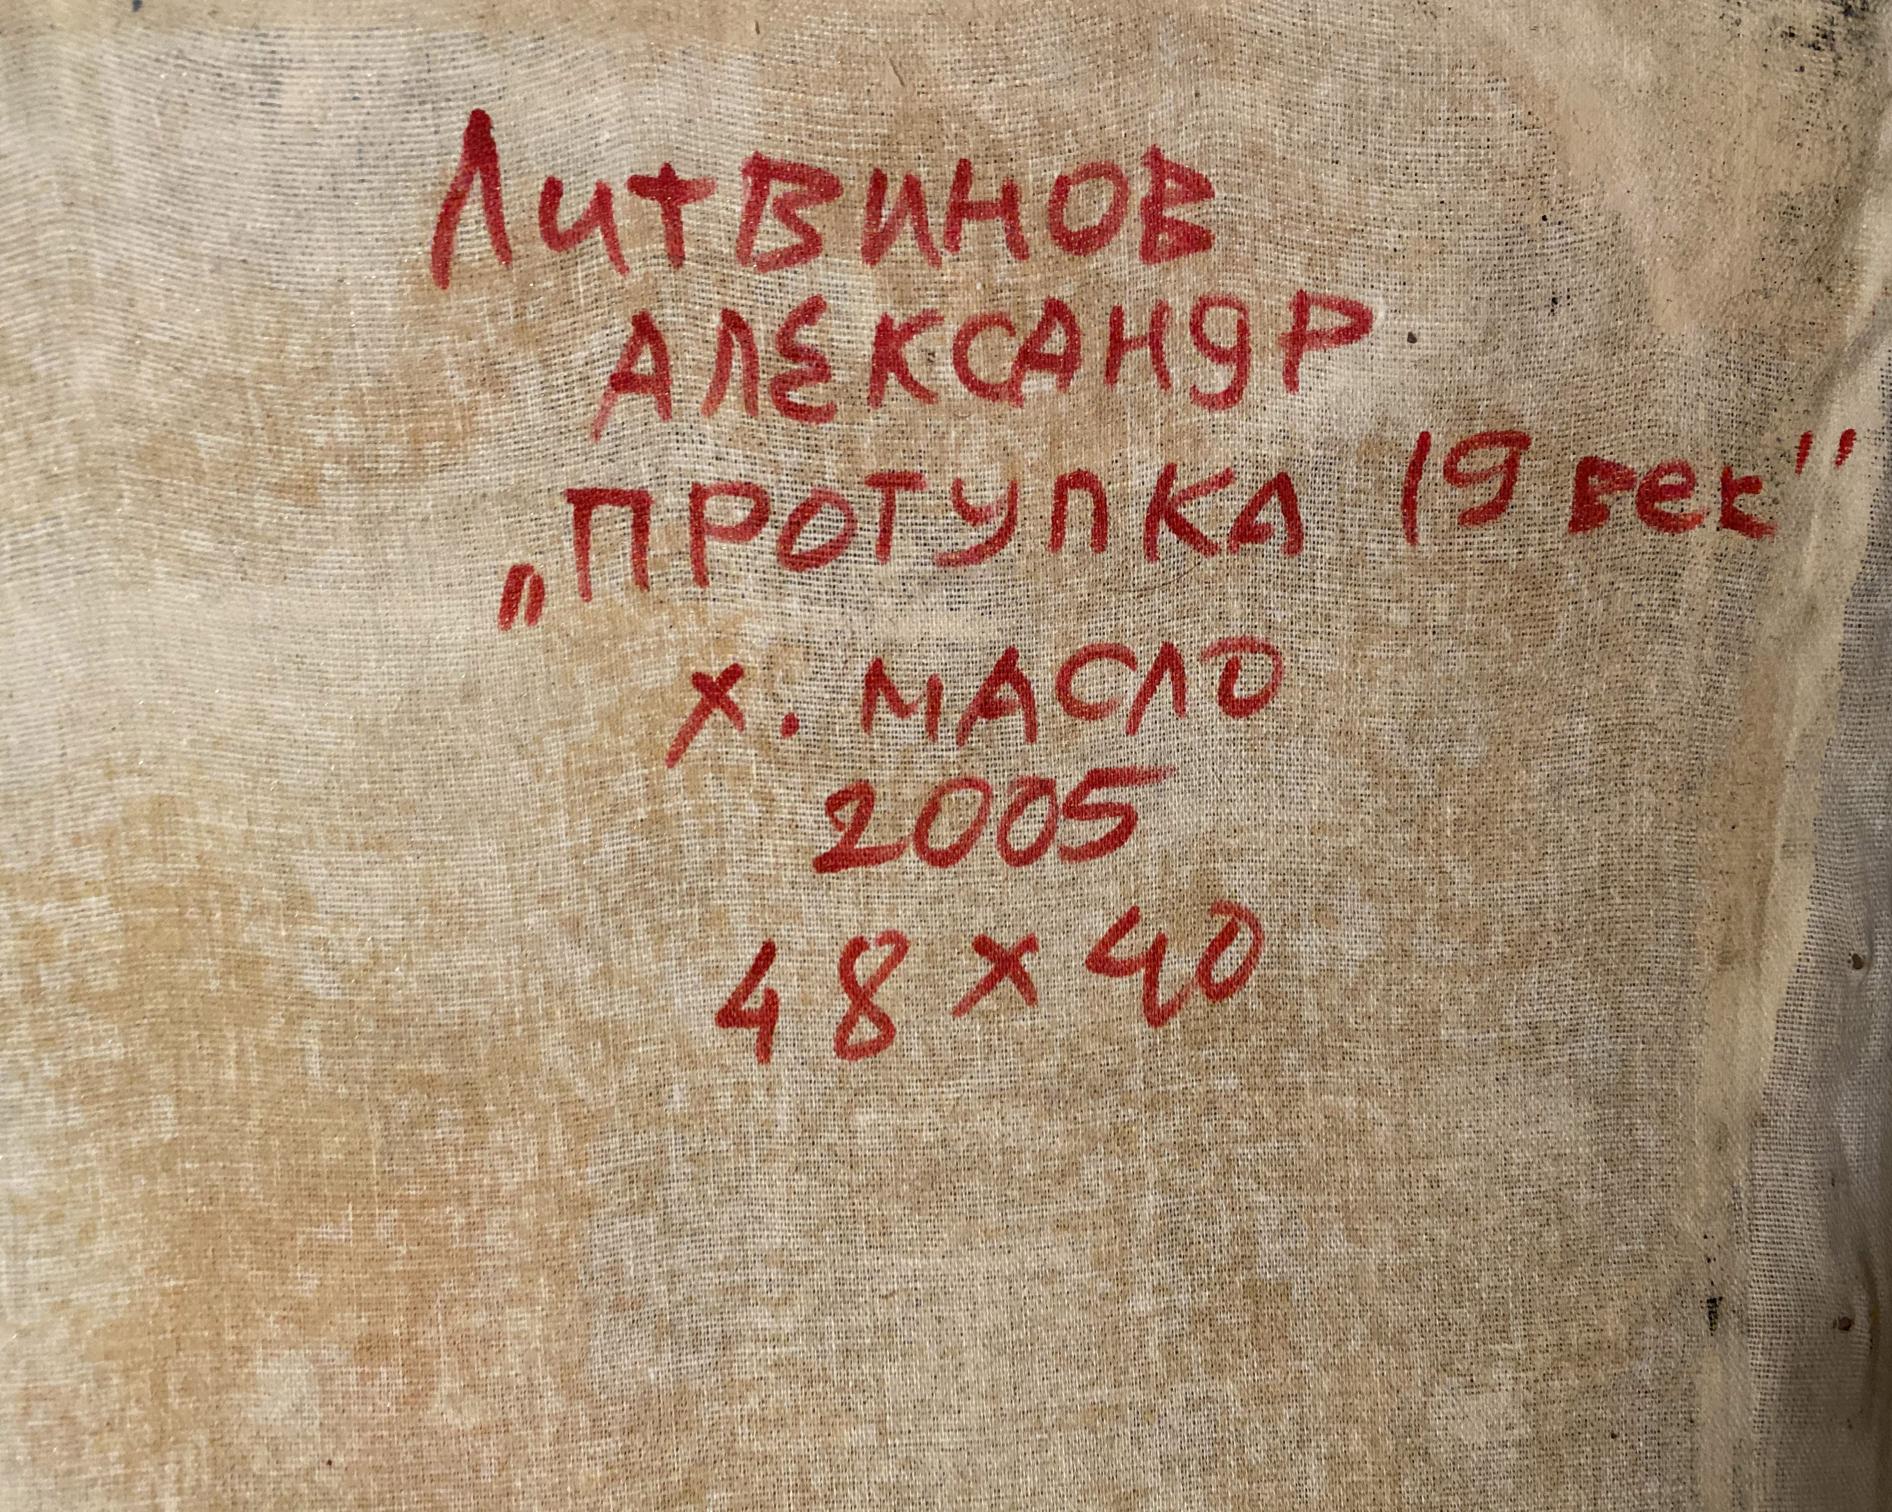 Литвинов
АЛЕКСАНДР
„ПРОГУЛКА 19 век"
х. МАСЛО
2005
48 x 40